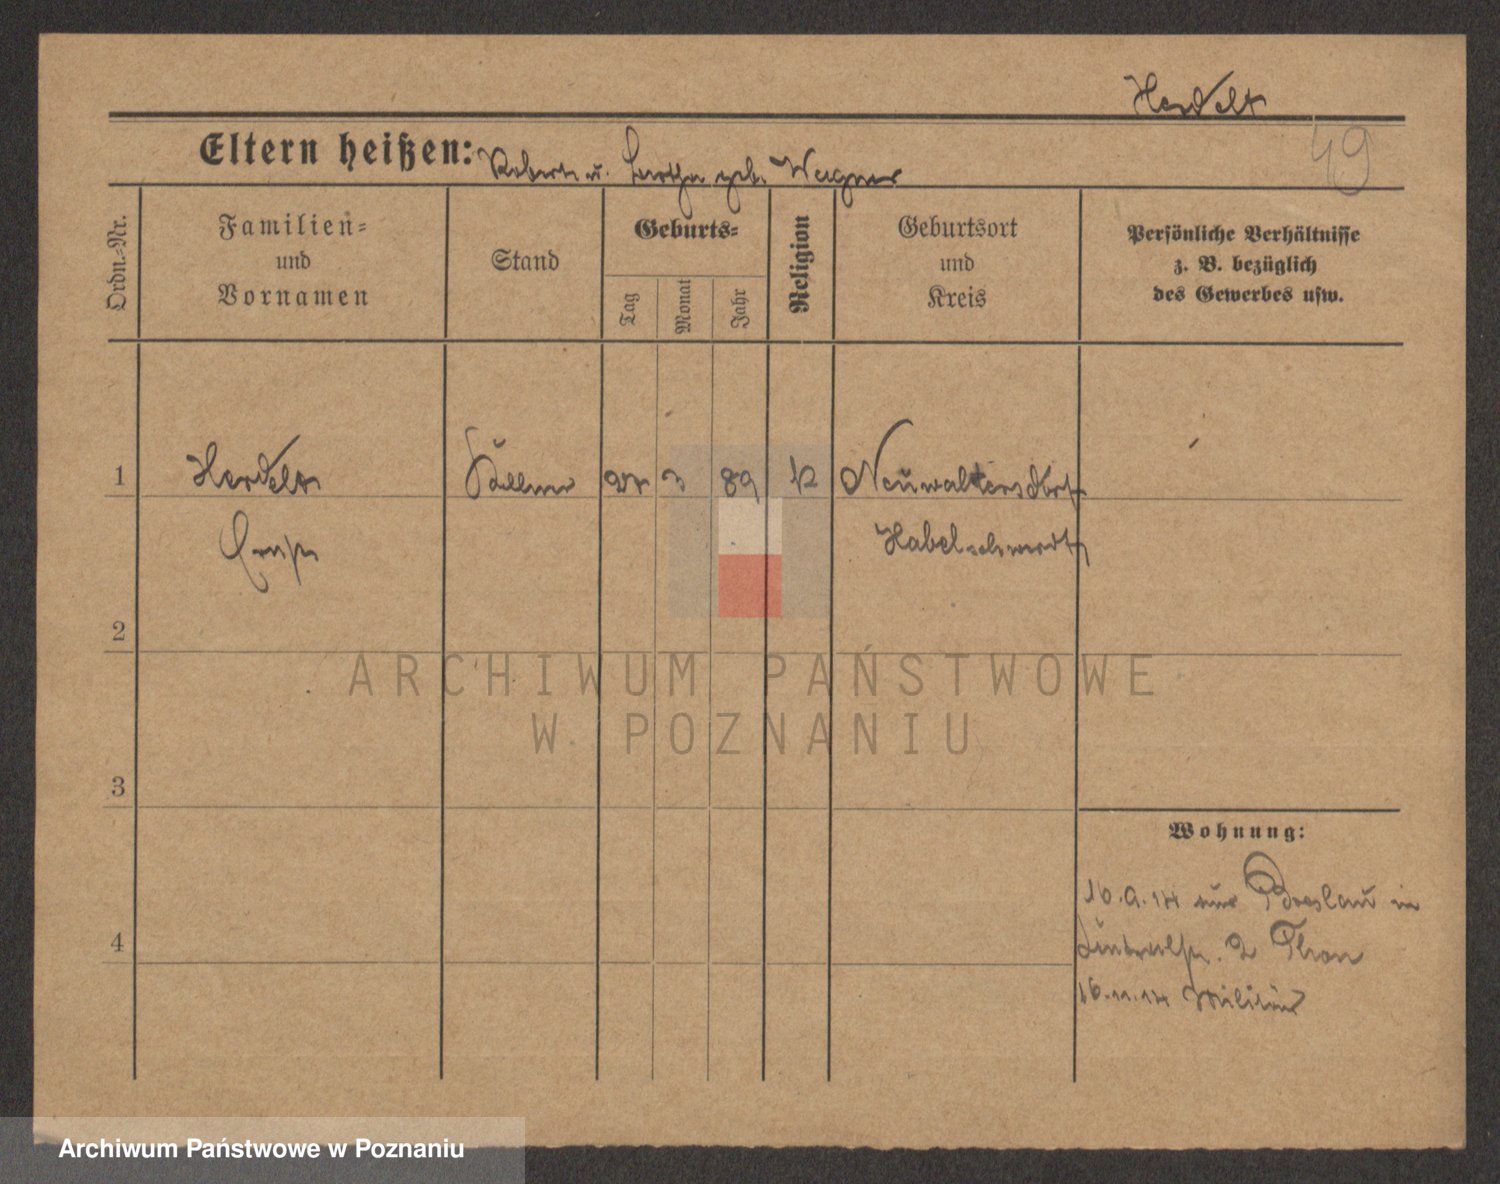 Herdelt
49
Eltern heißen: Robert u. Bertha geb. Wagner
Ordn.-Nr.
Familien-
und
Vornamen
Stand
Geburts-
Tag
Monat
Jahr
Religion
Geburtsort
und
Kreis
Persönliche Verhältnisse
z. B. bezüglich
des Gewerbes usw.
1
Herdelt
Kellner
3
89
Neuwaltersdorf
Ernst
Habelschwerdt
2
ARCHIWUM PAŃSTWOWE
W POZNANIU
3
Wohnung:
aus Breslau in
4
2 Thon
16.11.14 Militär
Archiwum Państwowe w Poznaniu